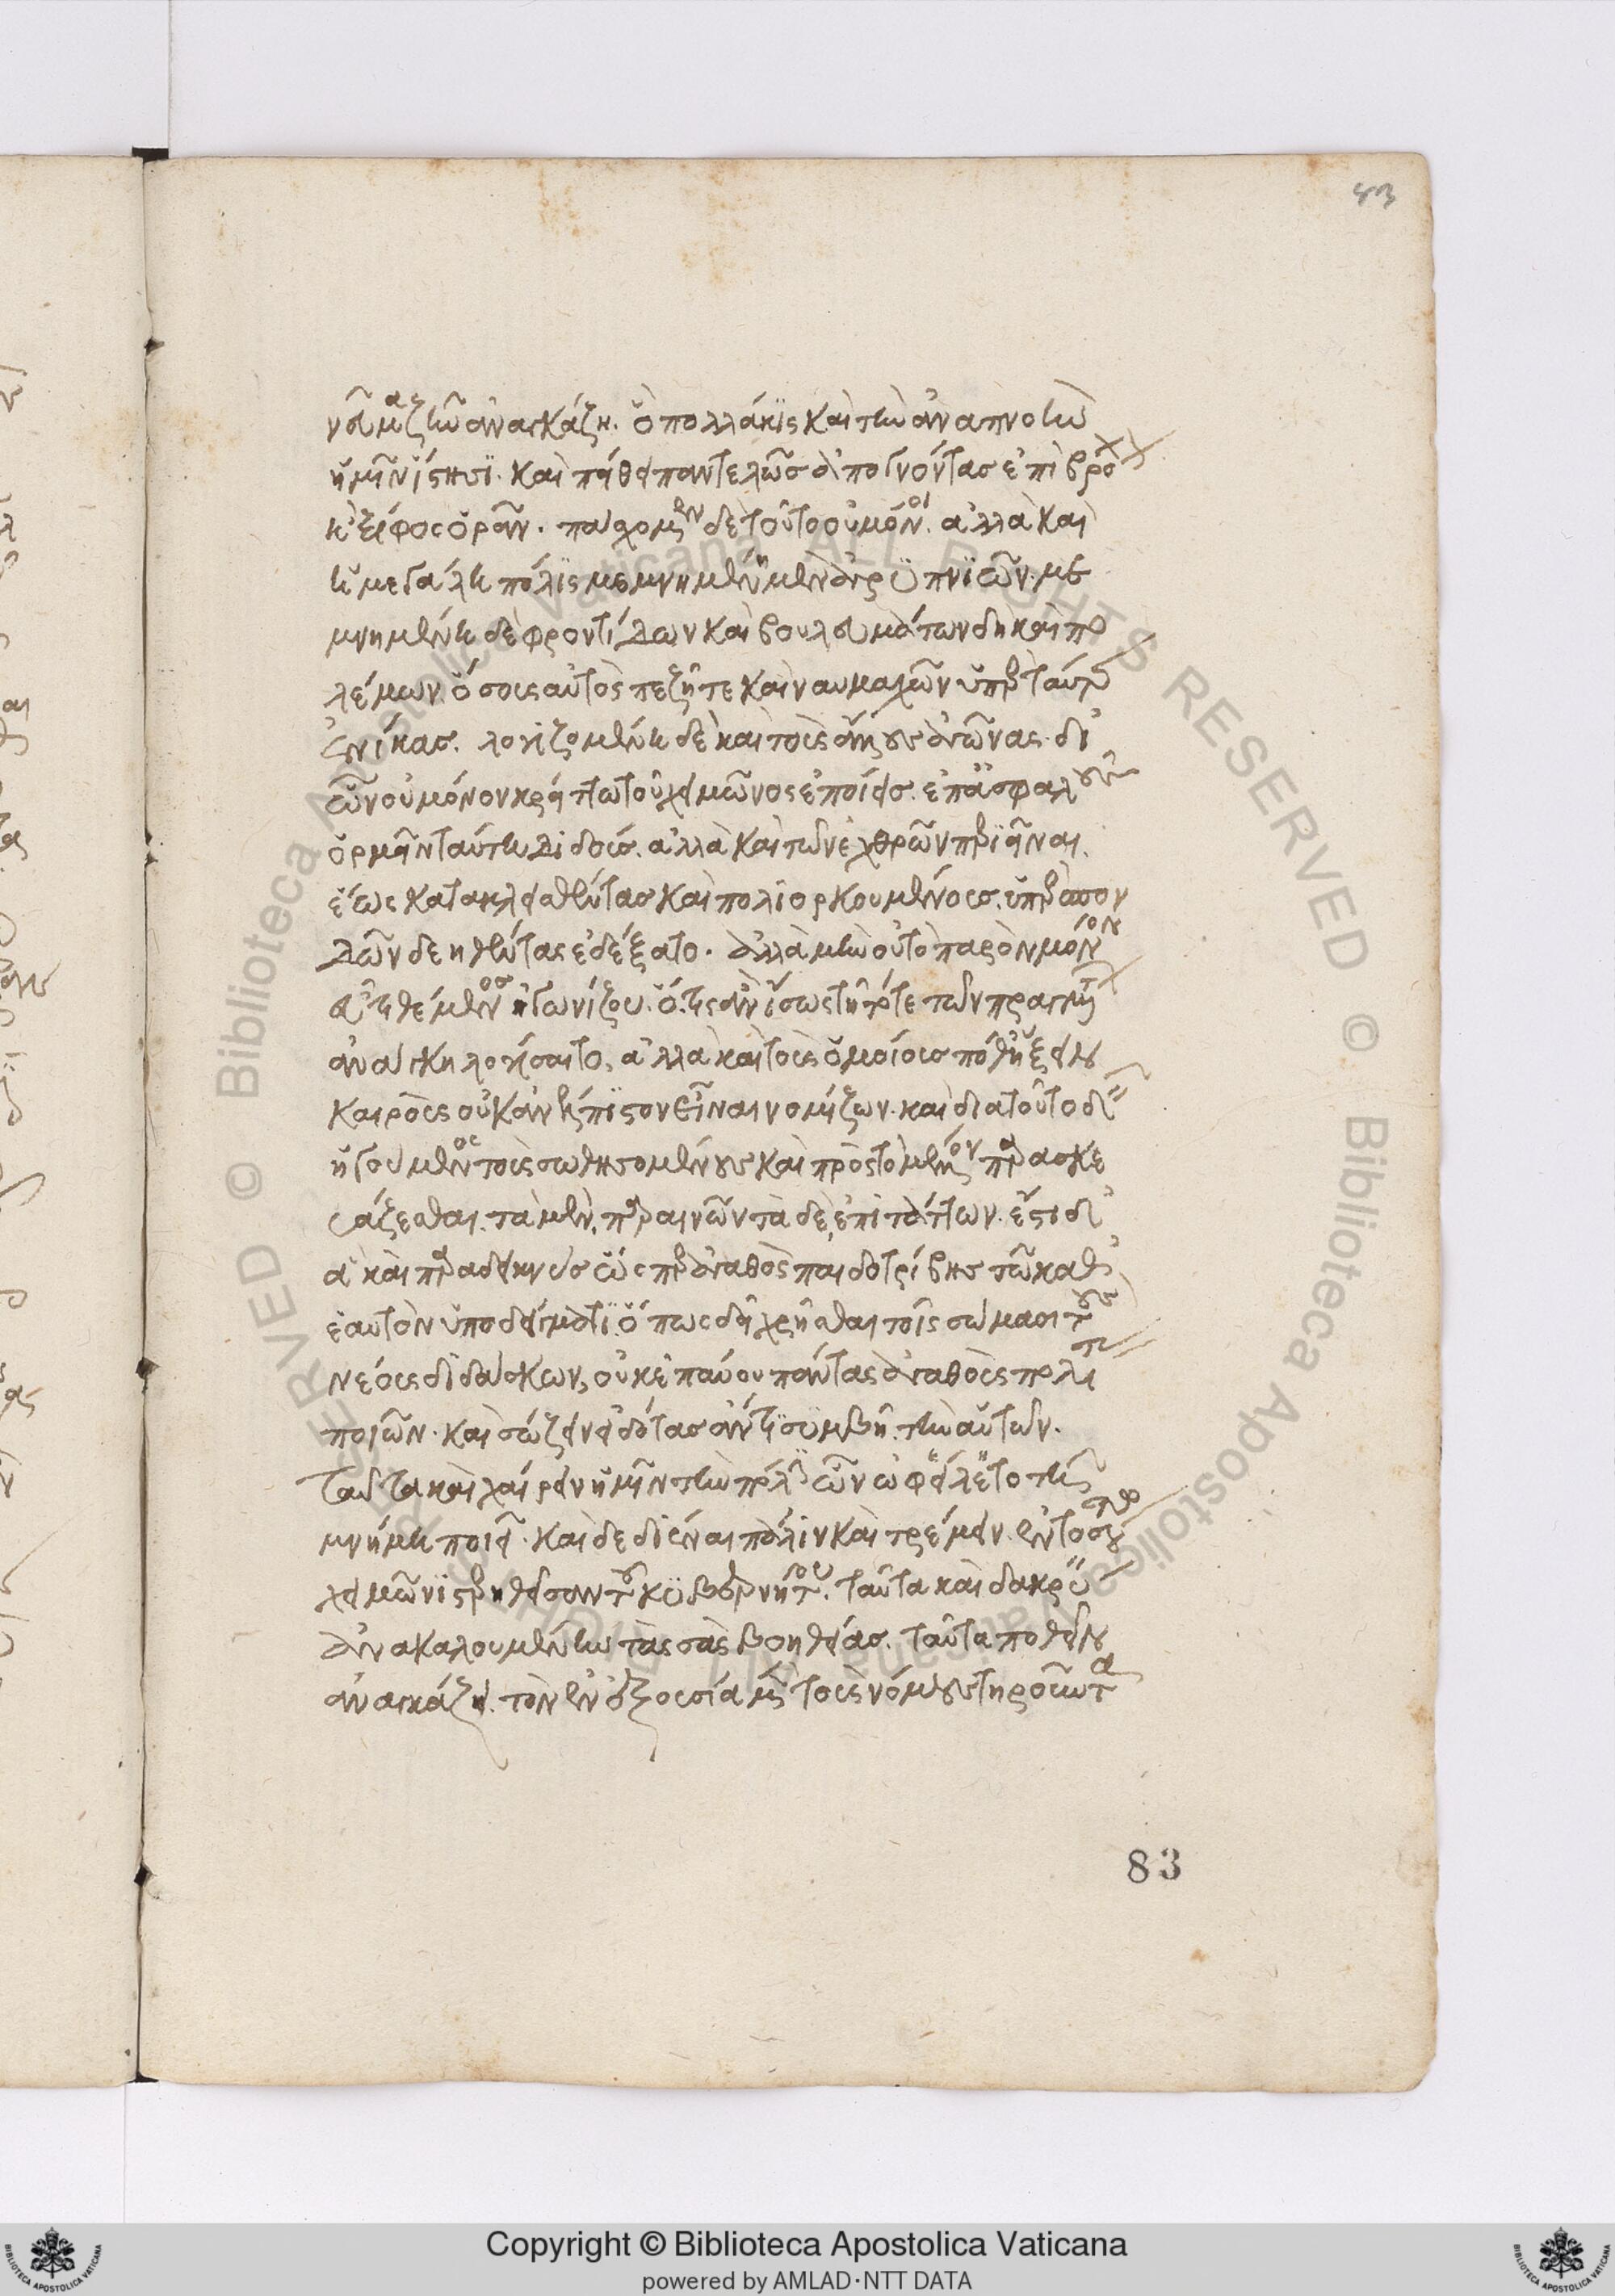 83
νεύματα ζῆν ἀναγκάζει. ὃ πολλάκις καὶ τὴν ἀναπνοὴν
ἡμῖν ἵστησι. καὶ πείθει παντελῶς ἀπογνόντας ἐπὶ βρό
χον
ἢ ξίφος ὁρᾶν. πάσχομεν δὲ τοῦτο οὐ μόνοι. ἀλλὰ καὶ
ἡ μεγάλη πόλις μεμνημένη μὲν ἀγρυπνιῶν. με
μνημένη δὲ φροντίδων καὶ βουλευμάτων δὴ καὶ πο
λέμων. ὅσους αὐτὸς πεζῇ τε καὶ ναυμαχῶν ὑπὲρ ταύτης
ἐνίκας. λογιζομένη δὲ καὶ τοὺς ἄλλους ἀγῶνας. δι'
ὧν οὐ μόνον κρείττω τοῦ χειμῶνος ἐποίεις. ἐπ' ἀσφαλοῦς
ὁρμεῖν ταύτῃ διδούς. ἀλλὰ καὶ τῶν ἐχθρῶν περιεῖναι.
ἕως κατακλεισθέντας καὶ πολιορκουμένους. ὑπὲρ σπον
δῶν δεηθέντας ἐδέξατο. ἀλλὰ μὴν οὐ τὸ παρὸν μόνον
εὖ τιθέμενος ἠγωνίζου. ὅ τις ἂν ἴσως τῇ τότε τῶν πραγμάτων
ἀνάγκῃ λογίσαιτο, ἀλλὰ καὶ τοὺς ὁμοίους ποθ' ἥξειν
καιροὺς οὐκ ἂν ἄπιστον εἶναι νομίζων. καὶ διὰ τοῦτο δεῖν
ἡγούμενος τοὺς σωθησομένους καὶ πρὸς τὸ μέλλον παρασκευ
άζεσθαι. τὰ μὲν, παραινῶν τὰ δὲ, ἐπιτάττων. ἔστι δ'
ἃ καὶ παραδεικνὺς ὥσπερ ἀγαθὸς παιδοτρίβης τῷ καθ'
ἑαυτὸν ὑποδείγματι. ὅπως δεῖ χρῆσθαι τοῖς σώμασι τοὺς
νέους διδάσκων, οὐκ ἐπαύου πάντας ἀγαθοὺς πολίτας
ποιῶν. καὶ σῴζειν εἰδότας ἄν τι συμβῇ. τὴν αὑτῶν.
ταῦτα καὶ χαίρειν ἡμῖν τὴν πόλιν ὧν ὠφέλητο τῇ
μνήμῃ ποιεῖ. καὶ δεδιέναι πάλιν καὶ τρέμειν. ἐν τοσούτῳ
χειμῶνι στερηθεῖσαν τοῦ κυβερνήτου. ταῦτα καὶ δακρύειν
ἀνακαλουμένην τὰς σὰς βοηθείας. ταῦτα ποθεῖν
ἀναγκάζει. τὸν ἐν ἐξουσίᾳ μὲν τοὺς νόμους τηροῦντα
83
Copyright © Biblioteca Apostolica Vaticana
powered by AMLAD·NTT DATA